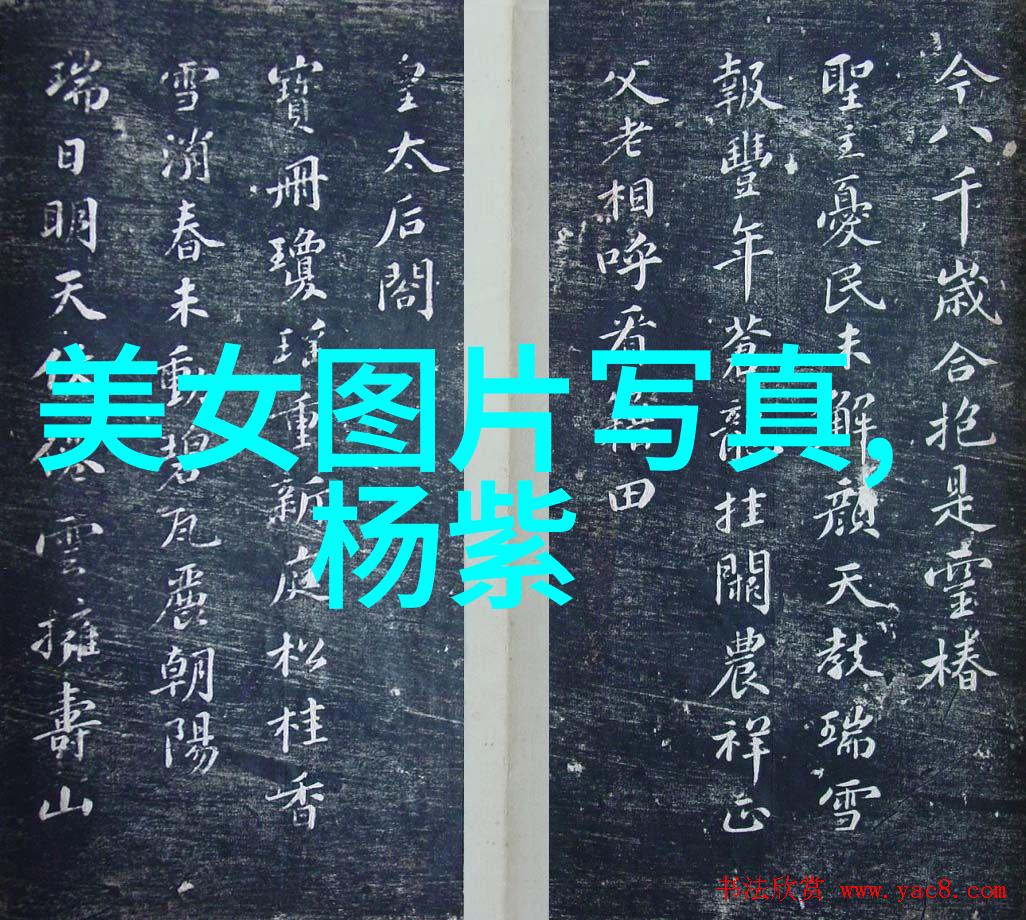 今八千歲合抱是靈椿
聖主憂民未解顏天教瑞雪
報豐年蒼龍挂闕農祥正
父老相呼看田
皇太后閤
寶冊瓊瑤重新庭松桂香
雪消春未動碧瓦麗朝陽
瑞日明天雲擁壽山
美女图片写真,
杨紫
书法欣赏 www.yac8.com